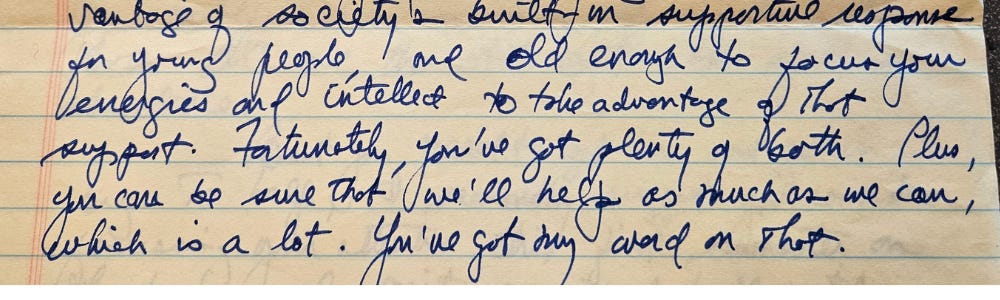 vantage of society's built-in supportive response
for young people, and old enough to focus your
energies and intellect to take advantage of that
support. Fortunately, you've got plenty of both. Plus,
you can be sure that we'll help as much as we can,
which is a lot. You've got my word on that.